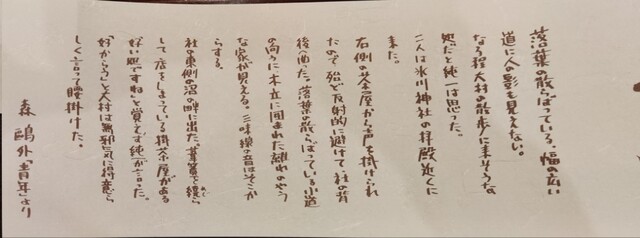 落葉の散らばっている、幅の広い
道に、人の影も見えない。
なる程大村の散歩に来そうな
処だと純一は思った。
二人は氷川神社の拝殿近くに
来た。
右側の茶屋から声を掛けられ
たので、殆ど反射的に避けて、社の背
後へ曲った。落葉の散らばっている小道
の向うに、木立に囲まれた離れのやう
な家が見える。三味線の音はそこか
らする。
社の東側の沼の畔に出た。葦簀を繞ら
めぐ
して店をしまっている掛茶屋がある
「好い処ですね」と、覚えず純一が云った。
「好かろう」と、大村は無邪気に得意ら
しく言って、腰掛けた。
森 鴎外「青年」より